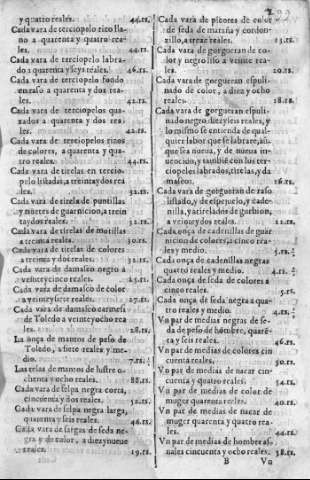 y quatro reales. 44.rs.
Cada vara de terciopelo rico lla-
no a quarenta y quatro rea-
les. 44.rs.
Cada vara de terciopelo labra-
do a quarenta y seys reales. 46.rs.
Cada vara de terciopelo fondo
en raso a quarenta y dos rea-
les. 42.rs.
Cada vara de terciopelos
a quarenta y dos rea-
les. 42.rs.
Cada vara de terciopelos rizos
de colores, a quarenta y qua-
tro reales. 44.rs.
Cada vara de tirelas en tercio-
pelo listado, a treinta y dos rea-
les. 32.rs.
Cada vara de tirela de puntillas
y muestra de guarnicion, a trein
ta y dos reales. 32.rs.
Cada vara de tirelas de motillas
a treinta reales. 30.rs.
Cada vara de tirelas de colores
a treinta y dos reales. 32.rs.
Cada vara de damasco negro a
veinte y cinco reales. 25.rs.
Cada vara de damasco de color
a veinte y siete reales. 27.rs.
Cada vara damasco carmesi
de Toledo a veinte y ocho rea
les. 28.rs.
La onça de mantos de peso de
Toledo, a siete reales y me-
dio. 7.rs.½
Las telas de mantos de lustre o-
chenta y ocho reales. 88.rs.
Cada vara de felpa negra corta,
cincuenta y dos reales. 52.rs.
Cada vara de felpa negra larga,
quarenta y seis reales. 46.rs.
Cada vara de sargas de seda ne-
gra y de color, a diez y nueue
reales. 19.rs.
2
Cada vara de picotes de color
de seda de mariña y cordon-
cillo, a treze reales. 13.rs.
Cada vara de gorgueran de co-
lor y negro liso a veinte rea-
les. 20.rs.
Cada vara de gorgueran espuli-
nado de color, a diez y ocho
reales. 18.rs.
Cada vara de gorgueran espuli-
nado negro, diez y seis reales, y
lo mismo se entienda de qual-
quier labor que se labrare, aũ-
que sea nueua, y de nueua in-
uencion, y tambiẽ con los ter-
ciopelos labrados, tirelas, y da
mascos. 16.rs.
Cada vara de gorgueran de raso
listado, y de espejuelo, y cade-
nilla, y a tirelados de gorbion,
a veinte y dos reales. 22.rs.
Cada onça de cadenillas de guar
nicion de colores, a cinco rea-
les y medio. 5.rs.½
Cada onça de cadenillas negras
quatro reales y medio. 4.rs.½
Cada onça de seda de colores a
cinco reales. 5.rs.
Cada onça de seda negra a qua-
tro reales y medio. 4.rs.½
Vn par de medias negras de se-
da de peso de hombre, quarẽ-
ta y seis reales. 46.rs.
Vn par de medias de colores cin
cuenta reales. 50.rs.
Vn par de medias de nacar cin-
cuenta y quatro reales. 54.rs.
Vn par de medias de color de
muger quarenta reales. 40.rs.
Vn par de medias de nacar de
muger quarenta y quatro rea-
les. 44.rs.
Vn par de medias de hombre as-
nales cincuenta y ocho reales. 58.rs.
B Vn